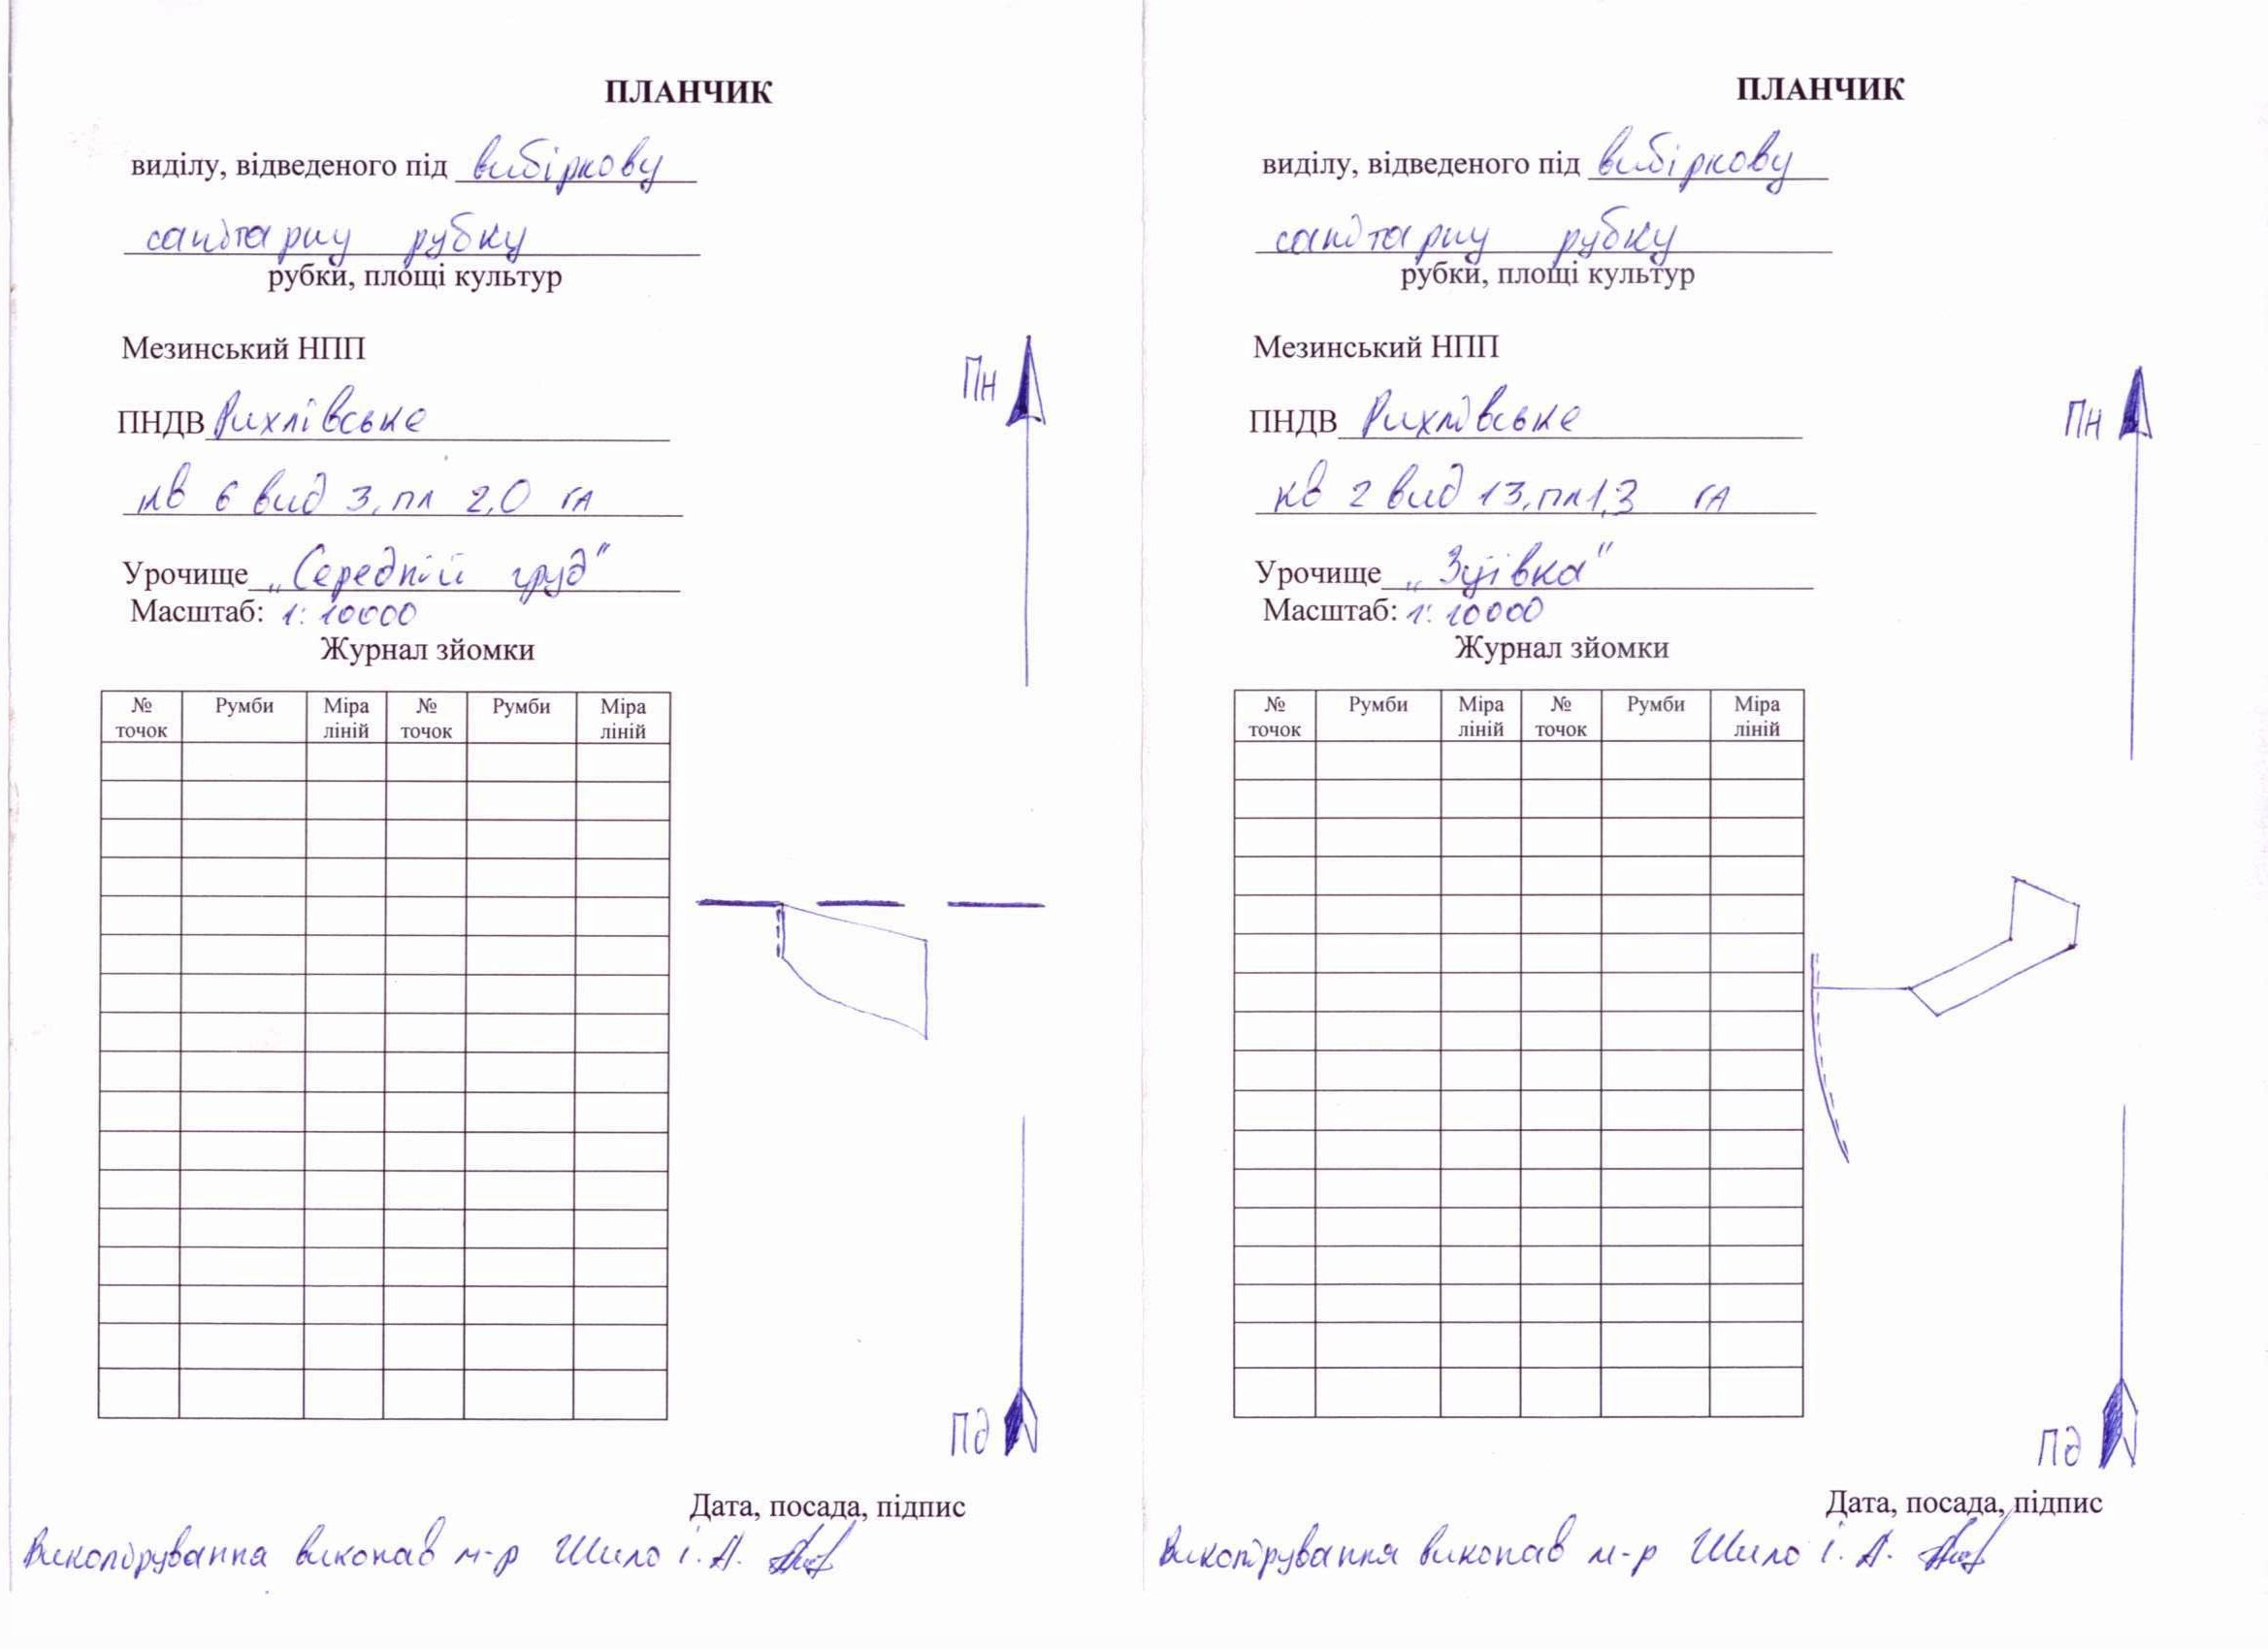 ПЛАНЧИК
виділу, відведеного під вибіркову
санітарну рубку
рубки, площі культур
Мезинський НПП
ПНДВ Рихлівське
кв 6 вид 3, пл 2,0 га
Урочище „Середній груд"
Масштаб: 1:10000
Журнал зйомки
№ точок Румби Міра ліній № точок Румби Міра ліній
Пн
Пд
Дата, посада, підпис
Викопірування виконав м-р Шило І. А.
ПЛАНЧИК
виділу, відведеного під вибіркову
санітарну рубку
рубки, площі культур
Мезинський НПП
ПНДВ Рихлівське
кв 2 вид 13, пл 1,3 га
Урочище „Зуївка"
Масштаб: 1:10000
Журнал зйомки
№ точок Румби Міра ліній № точок Румби Міра ліній
Пн
Пд
Дата, посада, підпис
Викопірування виконав м-р Шило І. А.